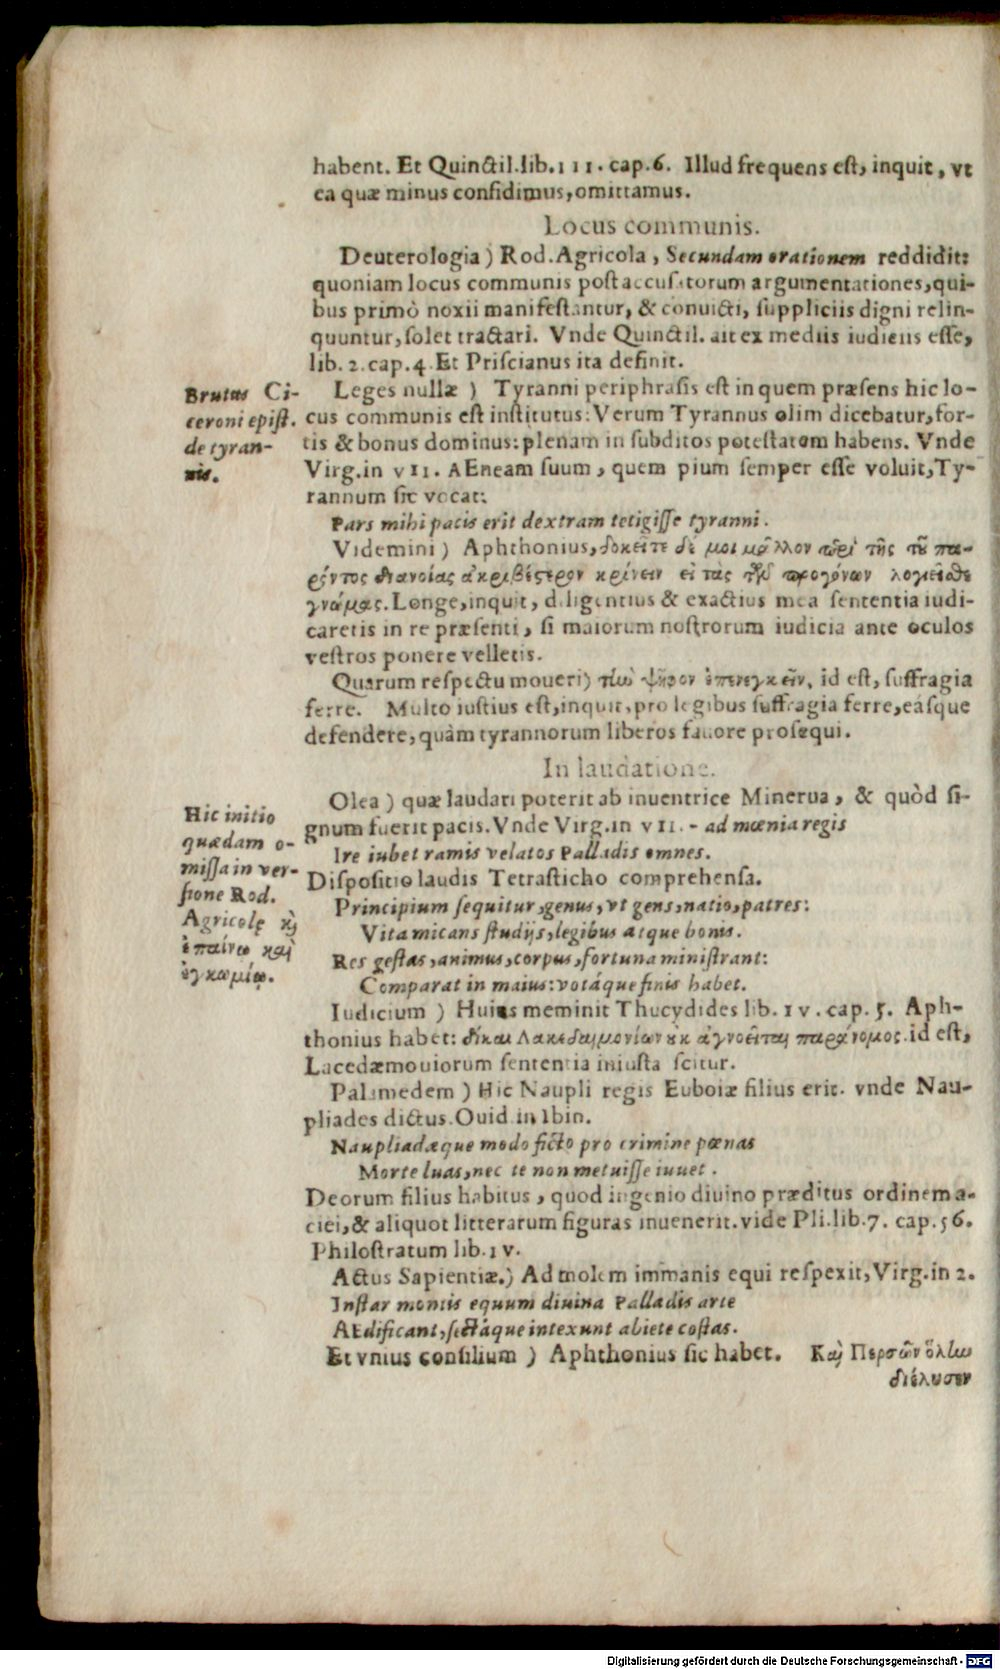 habent. Et Quinctil.lib.III. cap.6. Illud frequens est, inquit, vt
ea quæ minus confidimus, omittamus.
Locus communis.
Deuterologia) Rod.Agricola, Secundam orationem reddidit:
quoniam locus communis post accusatorum argumentationes, qui-
bus primò noxii manifestantur, & conuicti, suppliciis digni relin-
quuntur, solet tractari. Vnde Quinctil. ait ex mediis iudiciis esse,
lib. 2. cap. 4. Et Priscianus ita definit.
Brutus Ci-
ceroni epist.
de tyran-
nis.
Leges nullæ) Tyranni periphrasis est in quem præsens hic lo-
cus communis est institutus: Verum Tyrannus olim dicebatur, for-
tis & bonus dominus: plenam in subditos potestatem habens. Vnde
Virg. in VII. AEneam suum, quem pium semper esse voluit, Ty-
rannum sic vocat:
Pars mihi pacis erit dextram tetigisse tyranni.
Videmini) Aphthonius, δοκεῖτε δέ μοι μᾶλλον περὶ τῆς τοῦ πα-
ρόντος διανοίας ἀκριβέστερον κρίνειν εἰ τὰς τῶν προγόνων λογιεῖσθε
γνώμας. Longe, inquit, diligentius & exactius mea sententia iudi-
caretis in re præsenti, si maiorum nostrorum iudicia ante oculos
vestros ponere velletis.
Quarum respectu moueri) τὴν ψῆφον ἐπενεγκεῖν, id est, suffragia
ferre. Multo iustius est, inquit, pro legibus suffragia ferre, eásque
defendere, quàm tyrannorum liberos fauore prosequi.
In laudatione.
Hic initio
quædam o-
missa in ver-
sione Rod.
Agricolę καὶ
ἐπαίνῳ καὶ
ἐγκωμίῳ.
Olea) quæ laudari poterit ab inuentrice Minerua, & quòd si-
gnum fuerit pacis. Vnde Virg. in VII. - ad mœnia regis
Ire iubet ramis velatos Palladis omnes.
Dispositio laudis Tetrasticho comprehensa.
Principium sequitur, genus, vt gens, natio, patres:
Vita micans studijs, legibus atque bonis.
Res gestas, animus, corpus, fortuna ministrant:
Comparat in maius: votáque finis habet.
Iudicium) Huius meminit Thucydides lib. IV. cap. 5. Aph-
thonius habet: δίκαι Λακεδαιμονίων οὐκ ἀγνοεῖται παράνομος. id est,
Lacedæmoviorum sententia iniusta scitur.
Palamedem) Hic Naupli regis Euboiæ filius erit. vnde Nau-
pliades dictus. Ouid. in Ibin.
Naupliadæque modo ficto pro crimine pœnas
Morte luas, nec te non metuisse iuuet.
Deorum filius habitus, quod ingenio diuino præditus ordinem a-
ciei, & aliquot litterarum figuras inuenerit. vide Pli. lib. 7. cap. 56.
Philostratum lib. IV.
Actus Sapientiæ.) Ad molem immanis equi respexit, Virg. in 2.
Instar montis equum diuina Palladis arte
AEdificant, sectáque intexunt abiete costas.
Et vnius consilium) Aphthonius sic habet. Καὶ Περσῶν ὅλην
διέλυσεν
Digitalisierung gefördert durch die Deutsche Forschungsgemeinschaft - DFG